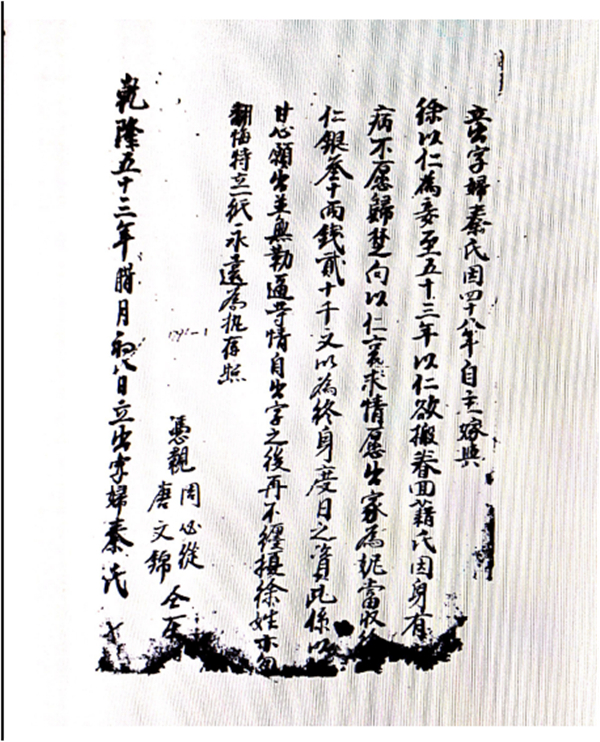 立出字婦秦氏因四十八年自主嫁與
徐以仁為妾至五十三年以仁欲搬眷回籍氏因身有
病不愿歸楚向以仁哀求情愿出家為尼當收
仁銀叁十兩錢貳十千文以為終身度日之資此係
甘心願出並無勒逼等情自出字之後再不纏擾徐姓亦勿
翻悔特立一紙永遠為抵存照
憑親 周必從
唐文錦 仝
乾隆五十三年腊月初八日立出字婦秦氏